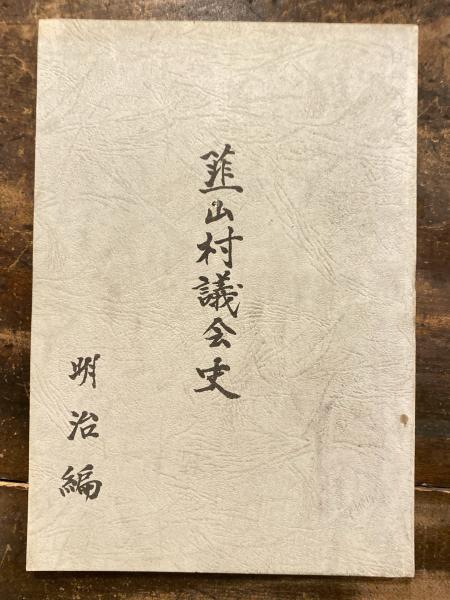 韮山村議会史
明治編